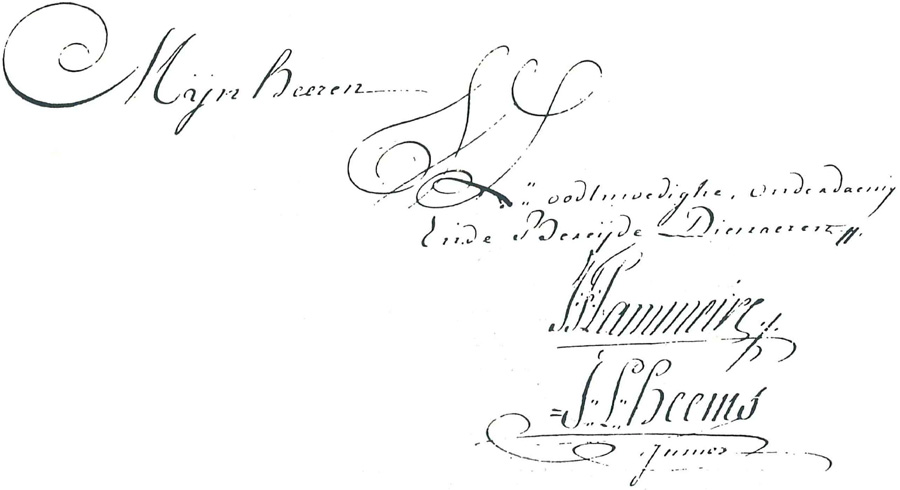 Mijn heeren
oodtmoedighe, onderdaenig
Ende Bereijde Dienaeren
Lammeire
J: L: heems
junior